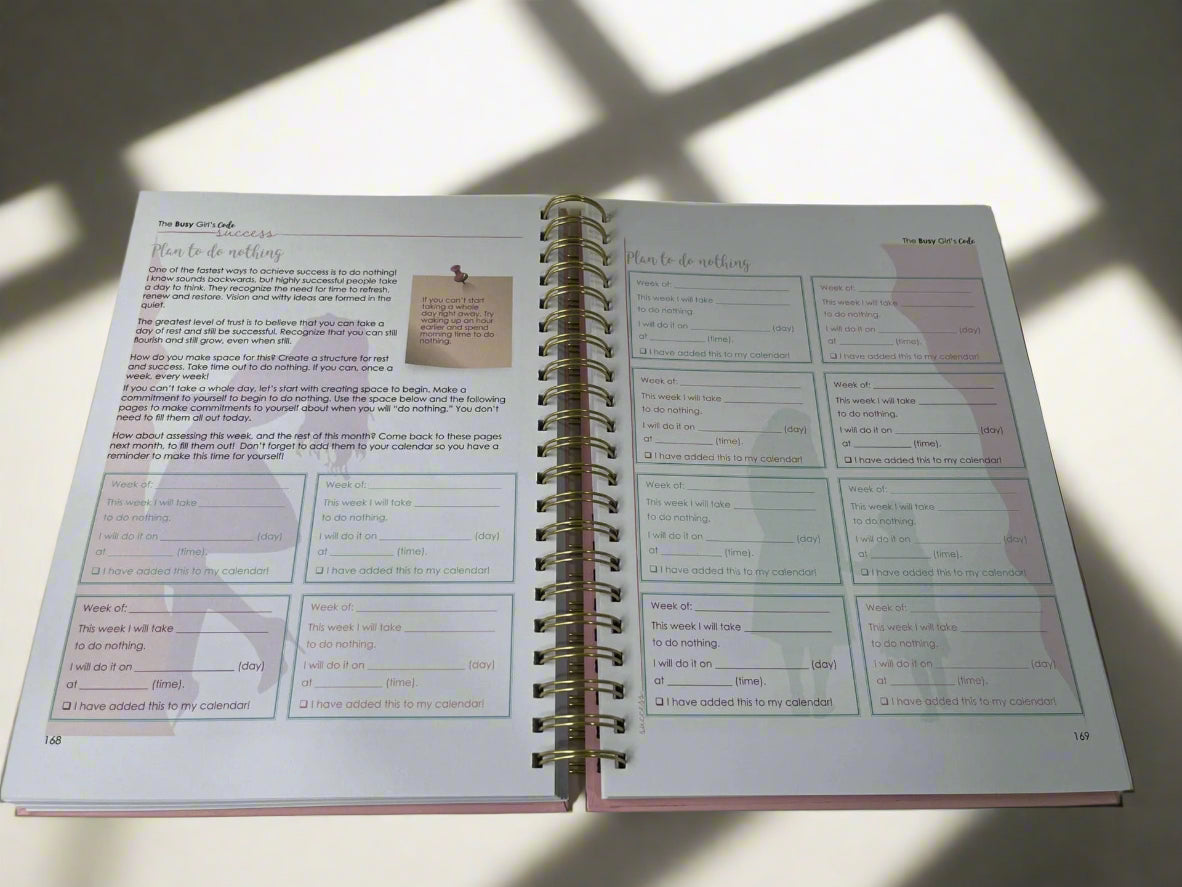 The Busy Girl's Code
success
Plan to do nothing
One of the fastest ways to achieve success is to do nothing!
I know sounds backwards, but highly successful people take
a day to think. They recognize the need for time to refresh,
renew and restore. Vision and witty ideas are formed in the
quiet.
The greatest level of trust is to believe that you can take a
day of rest and still be successful. Recognize that you can still
flourish and still grow, even when still.
How do you make space for this? Create a structure for rest
and success. Take time out to do nothing. If you can, once a
week, every week!
If you can't start
taking a whole
day right away. Try
waking up an hour
earlier and spend
morning time to do
nothing.
If you can't take a whole day, let's start with creating space to begin. Make a
commitment to yourself to begin to do nothing. Use the space below and the following
pages to make commitments to yourself about when you will "do nothing." You don't
need to fill them all out today.
How about assessing this week, and the rest of this month? Come back to these pages
next month, to fill them out! Don't forget to add them to your calendar so you have a
reminder to make this time for yourself!
Week of:
This week I will take
to do nothing.
I will do it on (day)
at (time).
❑ I have added this to my calendar!
Week of:
This week I will take
to do nothing.
I will do it on (day)
at (time).
❑ I have added this to my calendar!
Week of:
This week I will take
to do nothing.
I will do it on (day)
at (time).
❑ I have added this to my calendar!
Week of:
This week I will take
to do nothing.
I will do it on (day)
at (time).
❑ I have added this to my calendar!
168
The Busy Girl's Code
Plan to do nothing
Week of:
This week I will take
to do nothing.
I will do it on (day)
at (time).
❑ I have added this to my calendar!
Week of:
This week I will take
to do nothing.
I will do it on (day)
at (time).
❑ I have added this to my calendar!
Week of:
This week I will take
to do nothing.
I will do it on (day)
at (time).
❑ I have added this to my calendar!
Week of:
This week I will take
to do nothing.
I will do it on (day)
at (time).
❑ I have added this to my calendar!
Week of:
This week I will take
to do nothing.
I will do it on (day)
at (time).
❑ I have added this to my calendar!
Week of:
This week I will take
to do nothing.
I will do it on (day)
at (time).
❑ I have added this to my calendar!
Week of:
This week I will take
to do nothing.
I will do it on (day)
at (time).
❑ I have added this to my calendar!
Week of:
This week I will take
to do nothing.
I will do it on (day)
at (time).
❑ I have added this to my calendar!
success
169